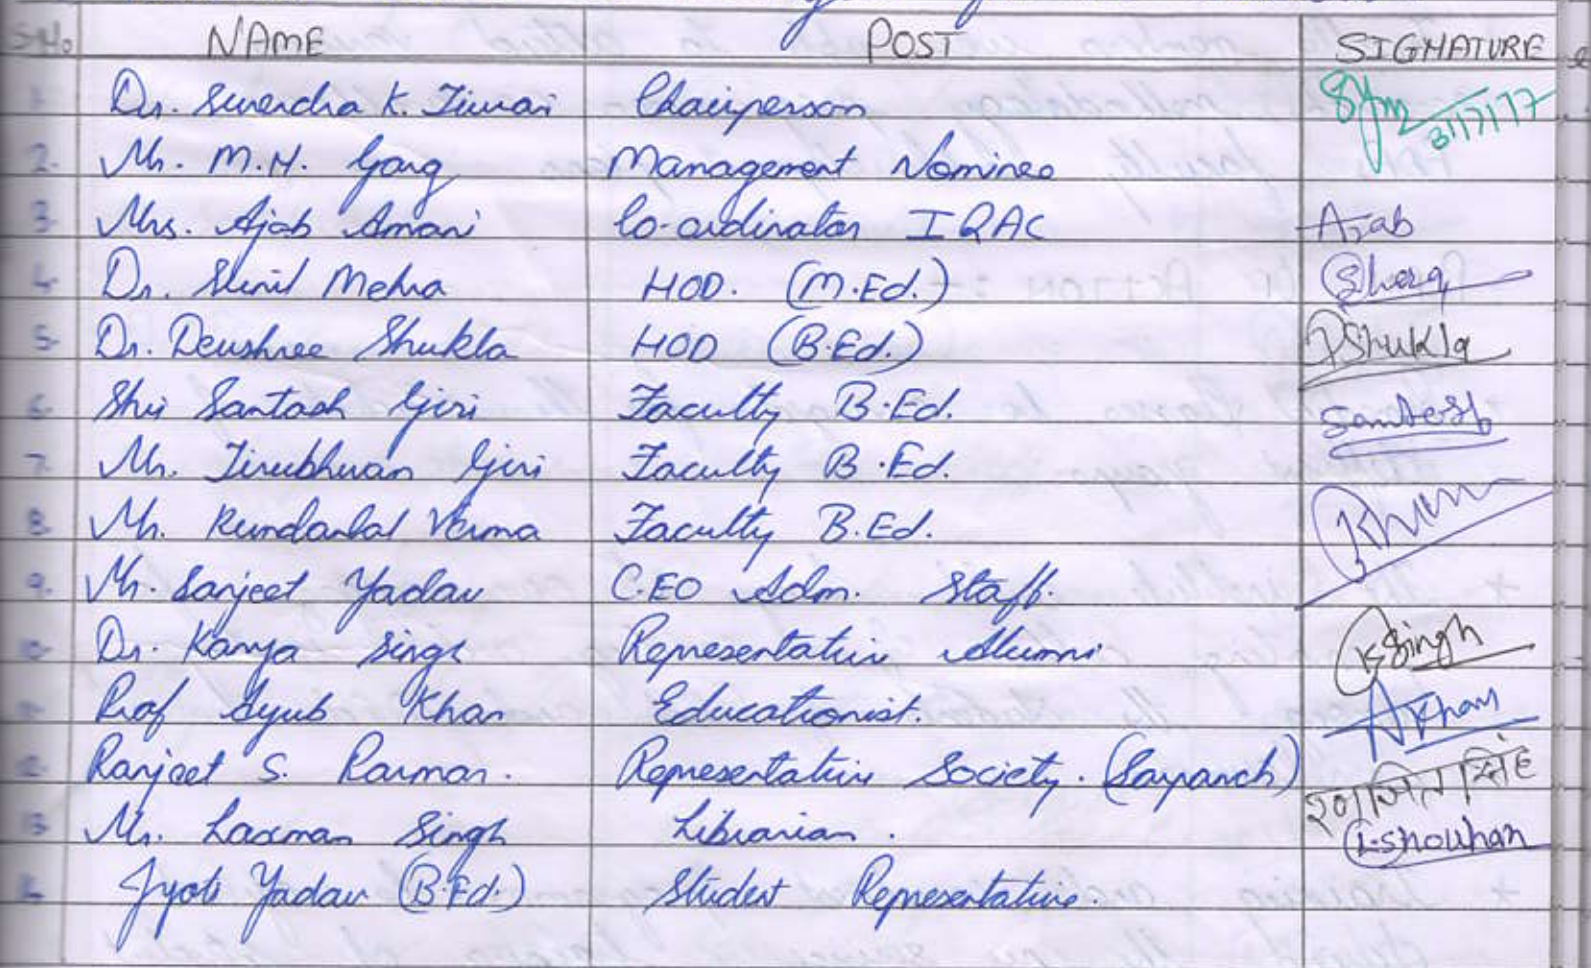 S.No. NAME POST SIGNATURE
1 Dr. Surendra K. Tiwari Chairperson 31/7/17
2. Mr. M.H. Garg Management Nominee
3. Mrs. Ajab Amari Co-ordinator IQAC Ajab
4. Dr. Sunil Mehra HOD. (M.Ed.)
5. Dr. Devshree Shukla HOD (B.Ed.) DShukla
6. Shri Santosh Giri Faculty B.Ed. Santosh
7. Mr. Tirubhuvan Giri Faculty B.Ed.
8. Mr. Kundanlal Verma Faculty B.Ed.
9. Mr. Sanjeet Yadav C.EO Adm. Staff.
10 Dr. Kanya Singh Representative Alumni KSingh
11 Prof Ayub Khan Educationist. AKhan
12 Ranjeet S. Parmar. Representative Society. (Sarpanch) रणजित सिंह
13 Mr. Laxman Singh Librarian. L.Shouhan
Jyoti Yadav (B.Ed.) Student Representative.